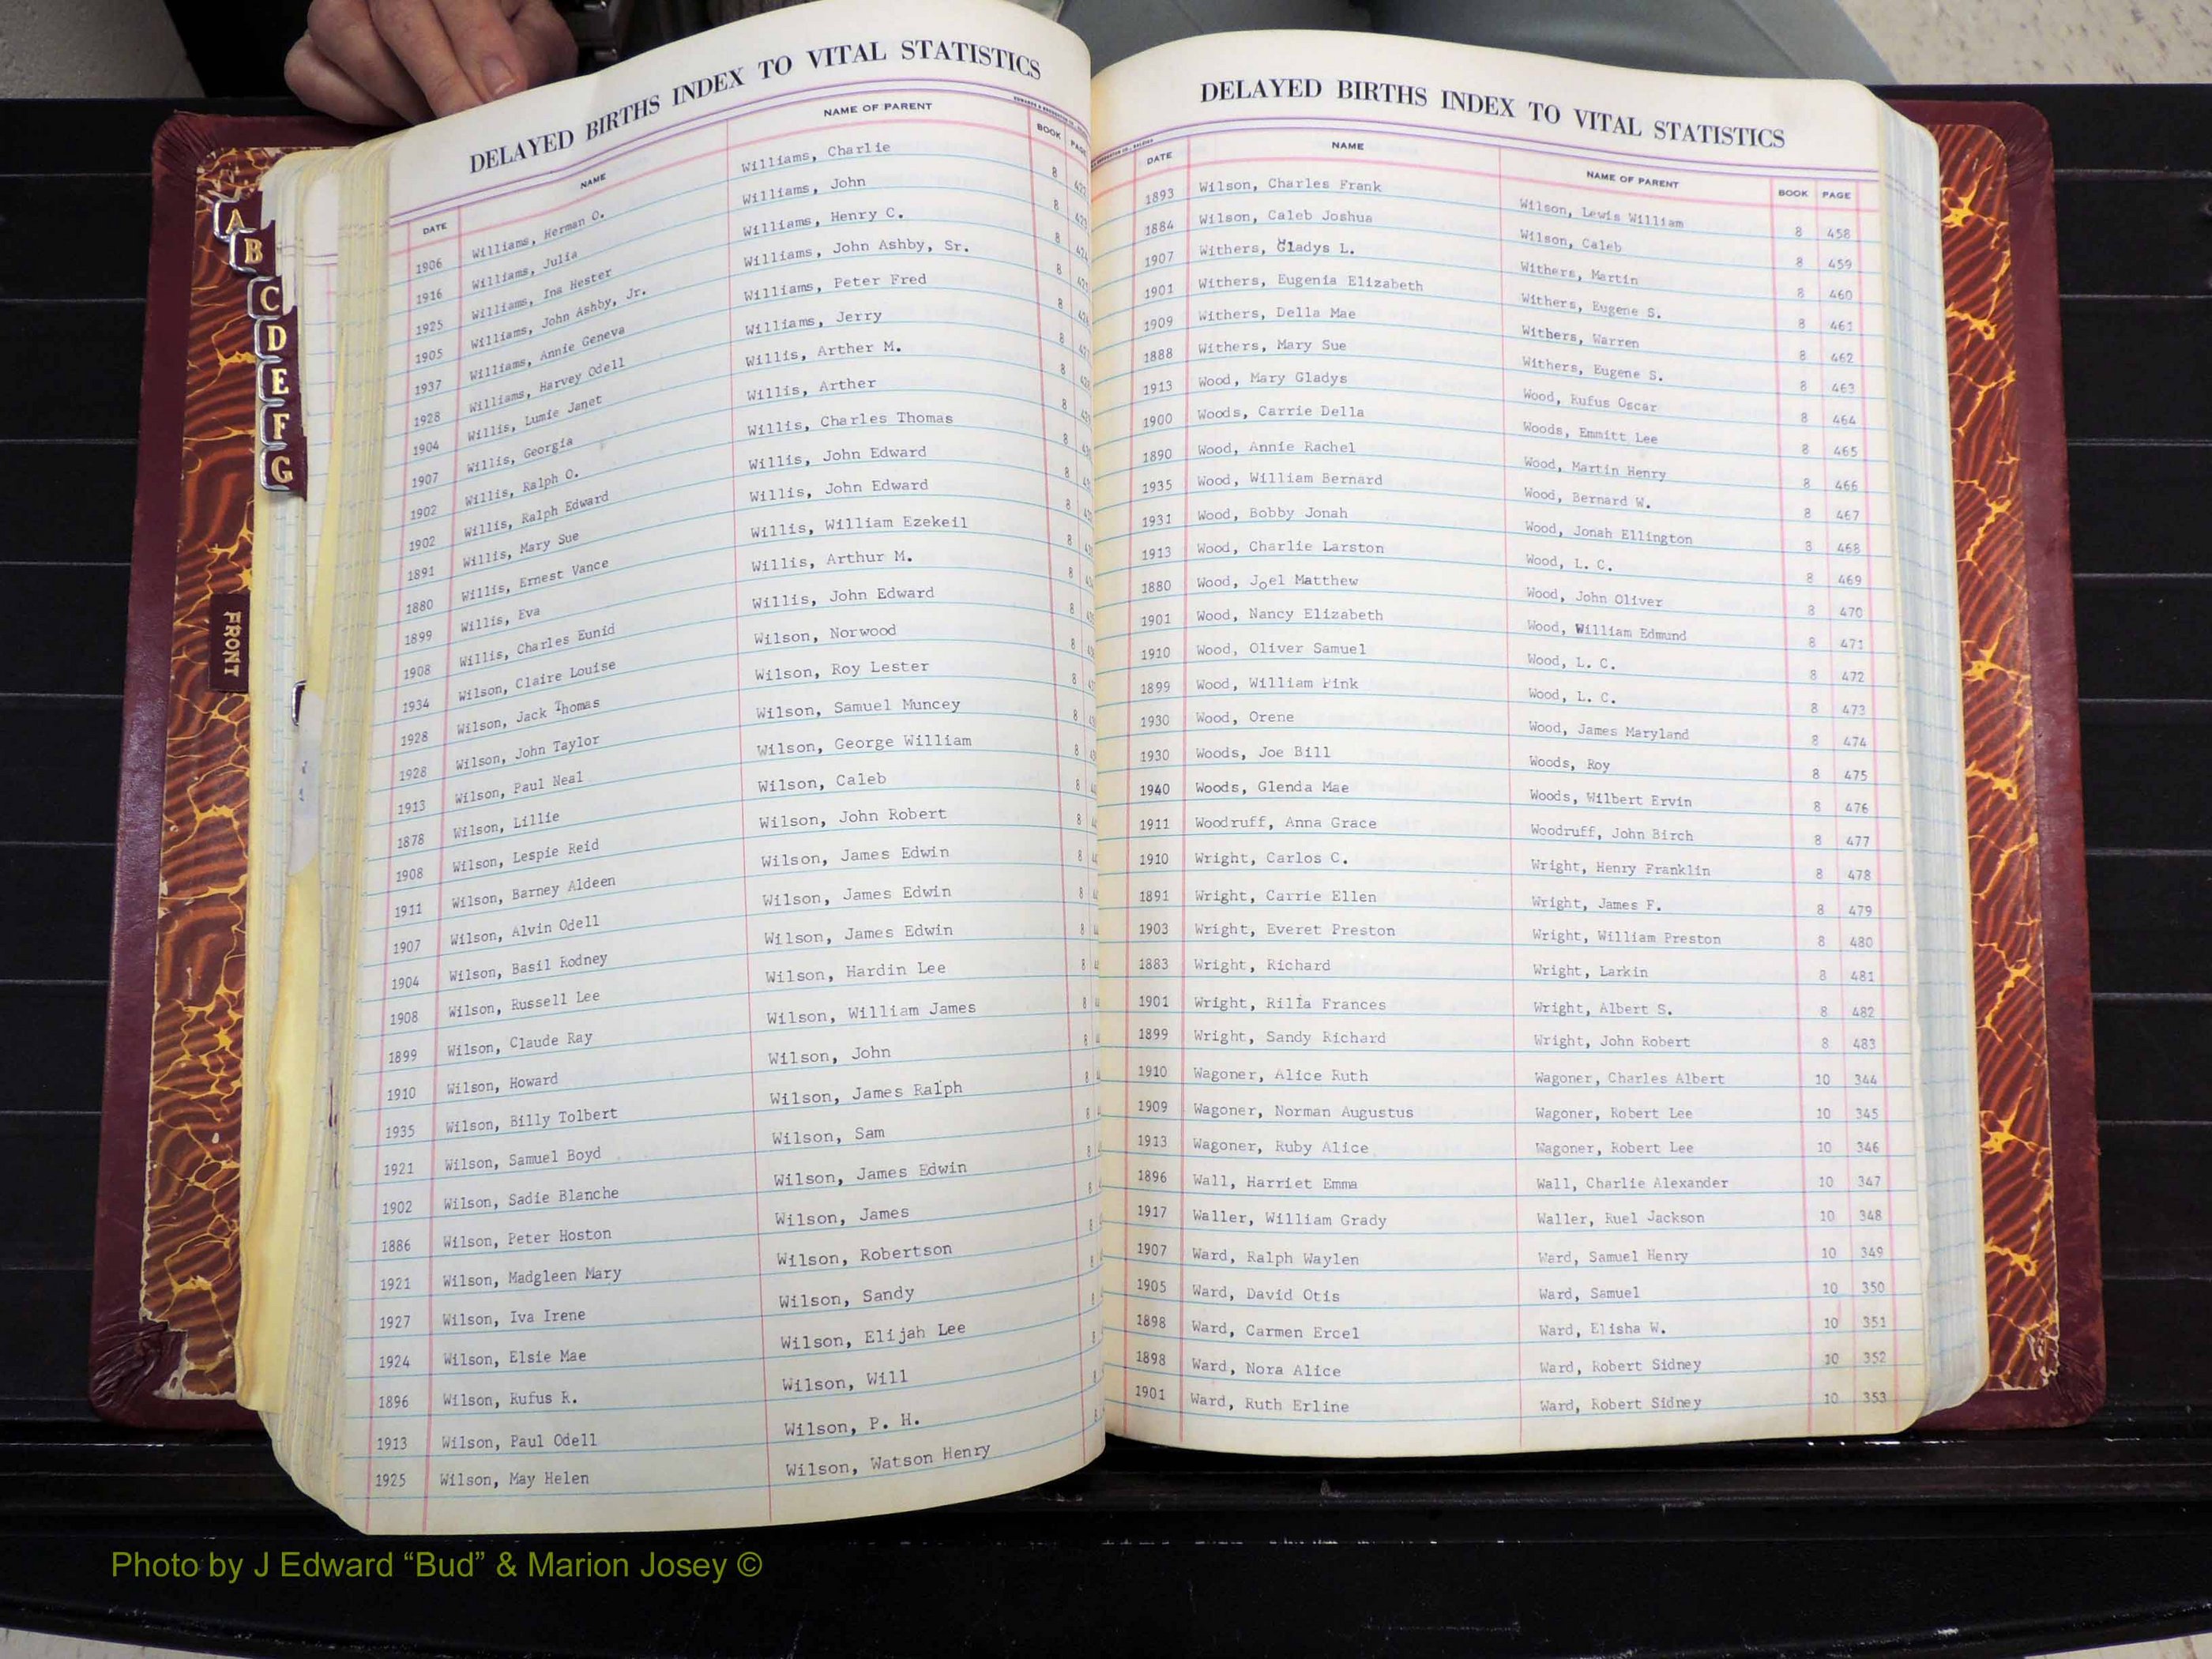 A
B
C
D
E
F
G
FRONT
DELAYED BIRTHS INDEX TO VITAL STATISTICS
DATE NAME NAME OF PARENT BOOK PAGE
1906 Williams, Herman O. Williams, Charlie 8
1916 Williams, Julia Williams, John 8
1925 Williams, Ina Hester Williams, Henry C. 8
1905 Williams, John Ashby, Jr. Williams, John Ashby, Sr. 8
1937 Williams, Annie Geneva Williams, Peter Fred 8
1928 Williams, Harvey Odell Williams, Jerry 8
1904 Willis, Lumie Janet Willis, Arther M. 8
1907 Willis, Georgia Willis, Arther 8
1902 Willis, Ralph O. Willis, Charles Thomas 8
1902 Willis, Ralph Edward Willis, John Edward 8
1891 Willis, Mary Sue Willis, John Edward 8
1880 Willis, Ernest Vance Willis, William Ezekeil 8
1899 Willis, Eva Willis, Arthur M. 8
1908 Willis, Charles Eunid Willis, John Edward 8
1934 Wilson, Claire Louise Wilson, Norwood 8
1928 Wilson, Jack Thomas Wilson, Roy Lester 8
1928 Wilson, John Taylor Wilson, Samuel Muncey 8
1913 Wilson, Paul Neal Wilson, George William 8
1878 Wilson, Lillie Wilson, Caleb 8
1908 Wilson, Lespie Reid Wilson, John Robert 8
1911 Wilson, Barney Aldeen Wilson, James Edwin 8
1907 Wilson, Alvin Odell Wilson, James Edwin 8
1904 Wilson, Basil Rodney Wilson, James Edwin 8
1908 Wilson, Russell Lee Wilson, Hardin Lee 8
1899 Wilson, Claude Ray Wilson, William James 8
1910 Wilson, Howard Wilson, John 8
1935 Wilson, Billy Tolbert Wilson, James Ralph 8
1921 Wilson, Samuel Boyd Wilson, Sam 8
1902 Wilson, Sadie Blanche Wilson, James Edwin 8
1886 Wilson, Peter Hoston Wilson, James 8
1921 Wilson, Madgleen Mary Wilson, Robertson 8
1927 Wilson, Iva Irene Wilson, Sandy 8
1924 Wilson, Elsie Mae Wilson, Elijah Lee 8
1896 Wilson, Rufus R. Wilson, Will 8
1913 Wilson, Paul Odell Wilson, P. H. 8
1925 Wilson, May Helen Wilson, Watson Henry
DELAYED BIRTHS INDEX TO VITAL STATISTICS
DATE NAME NAME OF PARENT BOOK PAGE
1893 Wilson, Charles Frank Wilson, Lewis William 8 458
1884 Wilson, Caleb Joshua Wilson, Caleb 8 459
1907 Withers, Gladys L. Withers, Martin 8 460
1901 Withers, Eugenia Elizabeth Withers, Eugene S. 8 461
1909 Withers, Della Mae Withers, Warren 8 462
1888 Withers, Mary Sue Withers, Eugene S. 8 463
1913 Wood, Mary Gladys Wood, Rufus Oscar 8 464
1900 Woods, Carrie Della Woods, Emmitt Lee 8 465
1890 Wood, Annie Rachel Wood, Martin Henry 8 466
1935 Wood, William Bernard Wood, Bernard W. 8 467
1931 Wood, Bobby Jonah Wood, Jonah Ellington 8 468
1913 Wood, Charlie Larston Wood, L. C. 8 469
1880 Wood, Joel Matthew Wood, John Oliver 8 470
1901 Wood, Nancy Elizabeth Wood, William Edmund 8 471
1910 Wood, Oliver Samuel Wood, L. C. 8 472
1899 Wood, William Pink Wood, L. C. 8 473
1930 Wood, Orene Wood, James Maryland 8 474
1930 Woods, Joe Bill Woods, Roy 8 475
1940 Woods, Glenda Mae Woods, Wilbert Ervin 8 476
1911 Woodruff, Anna Grace Woodruff, John Birch 8 477
1910 Wright, Carlos C. Wright, Henry Franklin 8 478
1891 Wright, Carrie Ellen Wright, James F. 8 479
1903 Wright, Everet Preston Wright, William Preston 8 480
1883 Wright, Richard Wright, Larkin 8 481
1901 Wright, Rilla Frances Wright, Albert S. 8 482
1899 Wright, Sandy Richard Wright, John Robert 8 483
1910 Wagoner, Alice Ruth Wagoner, Charles Albert 10 344
1909 Wagoner, Norman Augustus Wagoner, Robert Lee 10 345
1913 Wagoner, Ruby Alice Wagoner, Robert Lee 10 346
1896 Wall, Harriet Emma Wall, Charlie Alexander 10 347
1917 Waller, William Grady Waller, Ruel Jackson 10 348
1907 Ward, Ralph Waylen Ward, Samuel Henry 10 349
1905 Ward, David Otis Ward, Samuel 10 350
1898 Ward, Carmen Ercel Ward, Elisha W. 10 351
1898 Ward, Nora Alice Ward, Robert Sidney 10 352
1901 Ward, Ruth Erline Ward, Robert Sidney 10 353
Photo by J Edward “Bud” & Marion Josey ©